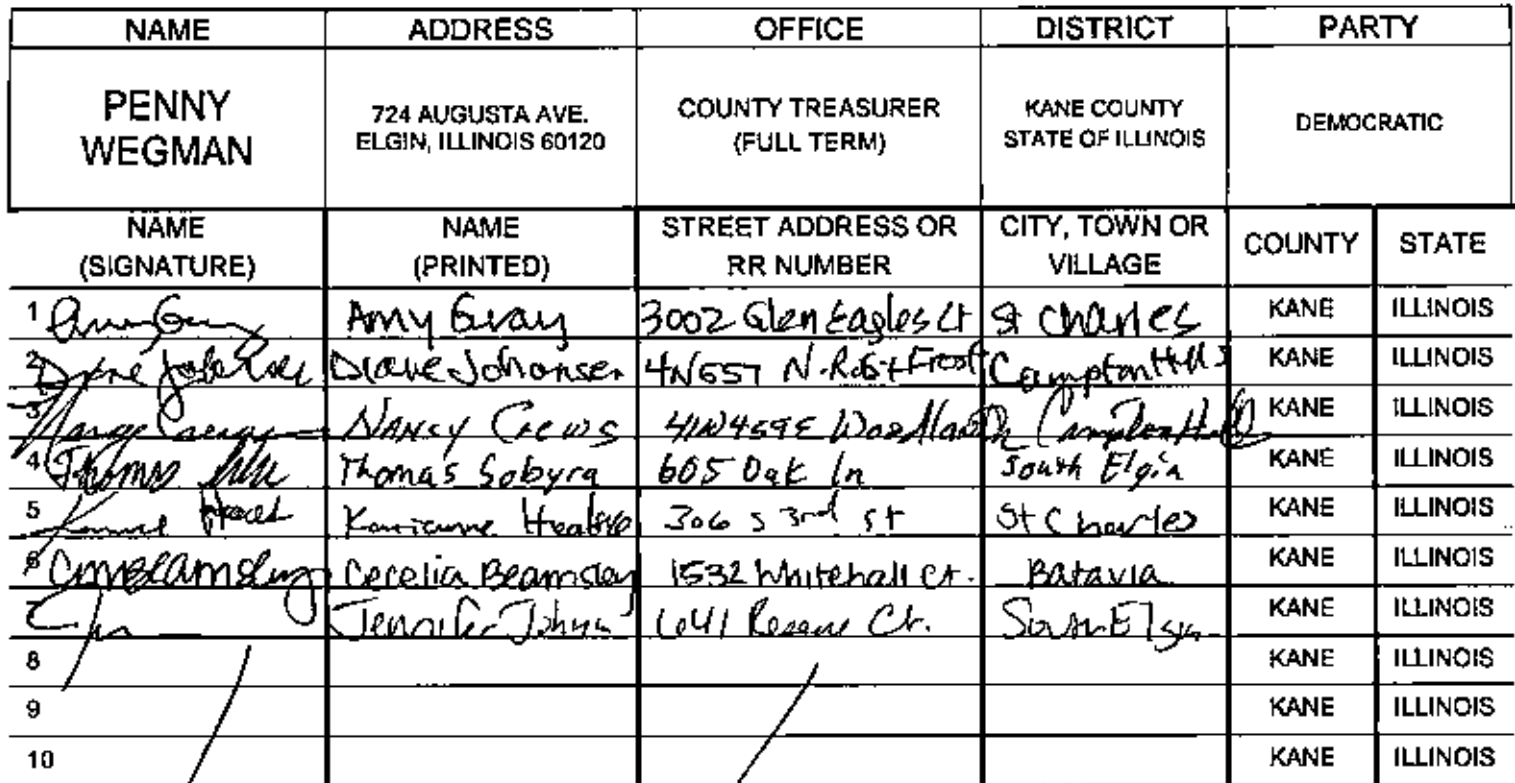 NAME ADDRESS OFFICE DISTRICT PARTY
PENNY WEGMAN 724 AUGUSTA AVE. ELGIN, ILLINOIS 60120 COUNTY TREASURER (FULL TERM) KANE COUNTY STATE OF ILLINOIS DEMOCRATIC
NAME (SIGNATURE) NAME (PRINTED) STREET ADDRESS OR RR NUMBER CITY, TOWN OR VILLAGE COUNTY STATE
1 Amy Gray 3002 Glen Eagles Ct St Charles KANE ILLINOIS
2 Diane Johansen 4N657 N. Robt Frost Campton Hills KANE ILLINOIS
3 Nancy Crews Campton Hills KANE ILLINOIS
4 Thomas Thomas Sobyra 605 Oak ln South Elgin KANE ILLINOIS
5 306 S 3rd St St Charles KANE ILLINOIS
6 CMBeamsley Cecelia Beamsley 1532 Whitehall Ct. Batavia KANE ILLINOIS
7 Jennifer 641 Ct. South Elgin KANE ILLINOIS
8 KANE ILLINOIS
9 KANE ILLINOIS
10 KANE ILLINOIS